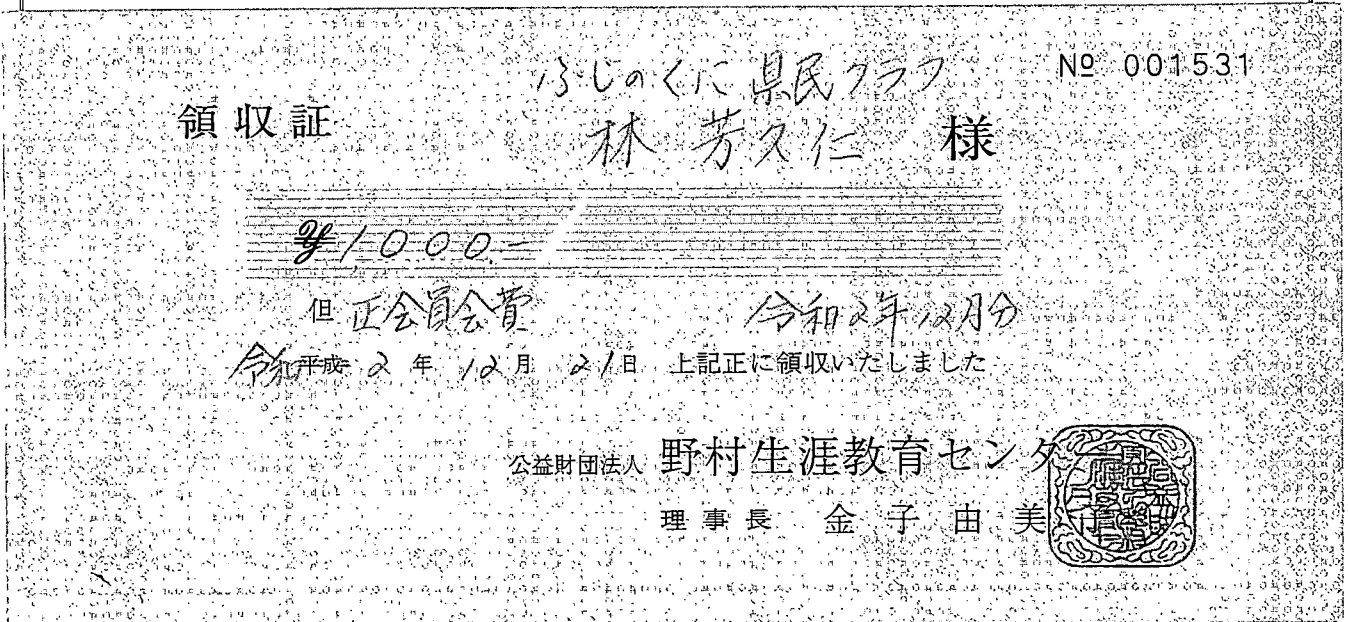 № 001531
ふじのくに県民クラブ
領収証
林 芳久仁 様
¥1,000.-
但 正会員会費 令和2年12月分
令和 平成 2 年 12 月 21 日 上記正に領収いたしました
公益財団法人 野村生涯教育センター
理事長 金子由美